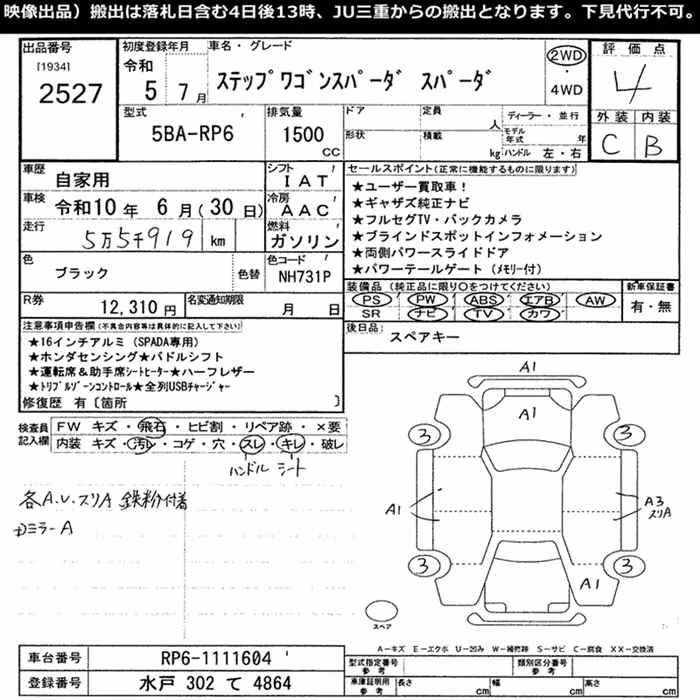 映像出品）搬出は落札日含む4日後13時、JU三重からの搬出となります。下見代行不可。
出品番号
[1934]
2527
初度登録年月
令和
5 7月
車名・グレード
ステップワゴンスパーダ スパーダ
2WD
・
4WD
評価点
4
外装 内装
C B
型式
5BA-RP6
排気量
1500
CC
ドア
形状
定員
人
積載
kg
ディーラー・並行
モデル
年式 年
ハンドル 左・右
車歴
自家用
シフト
IAT
車検
令和10年 6月(30日)
冷房
AAC
走行
5万5千919 km
燃料
ガソリン
色
ブラック
色替
色コード
NH731P
R券
12,310円
名変通知期限
月 日
セールスポイント(正常に機能するものに限ります)
★ユーザー買取車！
★ギャザズ純正ナビ
★フルセグTV・バックカメラ
★ブラインドスポットインフォメーション
★両側パワースライドドア
★パワーテールゲート（メモリー付）
装備品（純正品に限り○をつけてください）
PS PW ABS エアB AW
SR ナビ TV カワ
新車保証書
有・無
後日品
スペアキー
注意事項申告欄(不具合内容等は具体的に記入して下さい)
★16インチアルミ（SPADA専用）
★ホンダセンシング★パドルシフト
★運転席&助手席シートヒーター★ハーフレザー
★トリプルゾーンコントロール★全列USBチャージャー
修復歴 有〔箇所 〕
検査員
記入欄
FW キズ・飛石・ヒビ割・リペア跡・×要
内装 キズ・汚レ・コゲ・穴・スレ・キレ・破レ
ハンドル シート
各A.U.スリA 鉄粉付着
ミラーA
A1
A1
3
3
A1
A3
スリA
3
3
A1
スペア
A－キズ E－エクボ U－凹み W－補修跡 S－サビ C－腐食 XX－交換済
車台番号
RP6-1111604
登録番号
水戸 302 て 4864
型式指定番号
参考
類別区分番号
参考
車庫証明用
参考
長さ
cm
幅
cm
高さ
cm